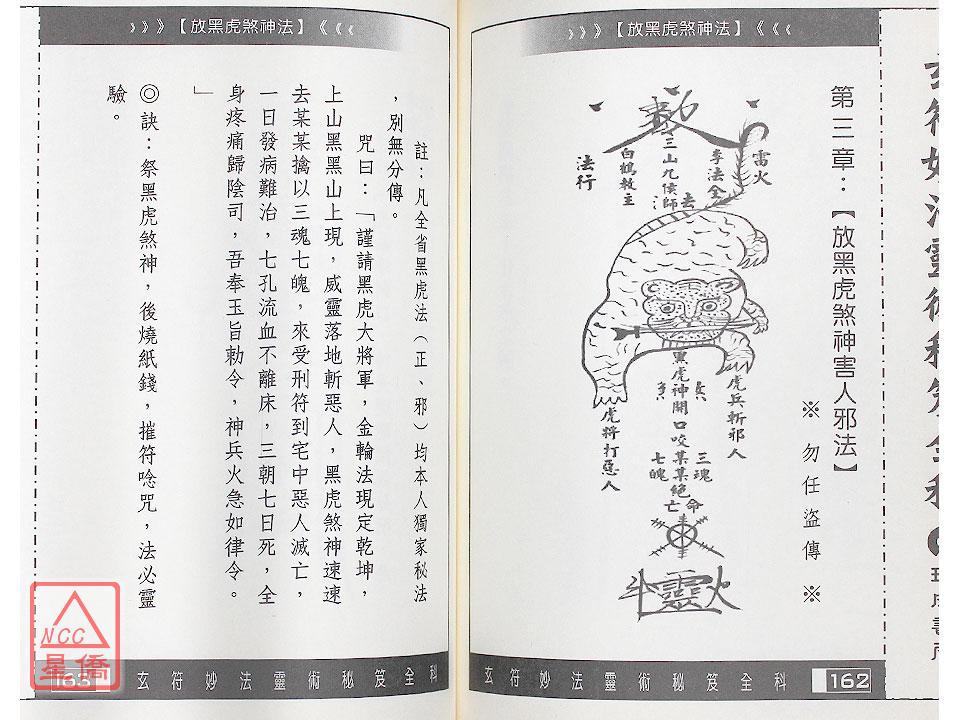 》》》【放黑虎煞神法】《《《
第三章：【放黑虎煞神害人邪法】
※勿任盜傳※
雷火
李法全
三山九侯師
白鶴教主
法行
虎兵斬邪人
黑虎神開口咬某某絕
虎將打惡人
三魂
七魄
命
亡
靈
玄符妙法靈術秘笈全科
162
》》》【放黑虎煞神法】《《《
註：凡全省黑虎法（正、邪）均本人獨家秘法
，別無分傳。
咒曰：「謹請黑虎大將軍，金輪法現定乾坤，
上山黑黑山上現，威靈落地斬惡人，黑虎煞神速速
去某某擒以三魂七魄，來受刑符到宅中惡人滅亡，
一日發病難治，七孔流血不離床，三朝七日死，全
身疼痛歸陰司，吾奉玉旨勅令，神兵火急如律令。
」
◎訣：祭黑虎煞神，後燒紙錢，摧符唸咒，法必靈
驗。
玄符妙法靈術秘笈全科
163
NCC
星僑